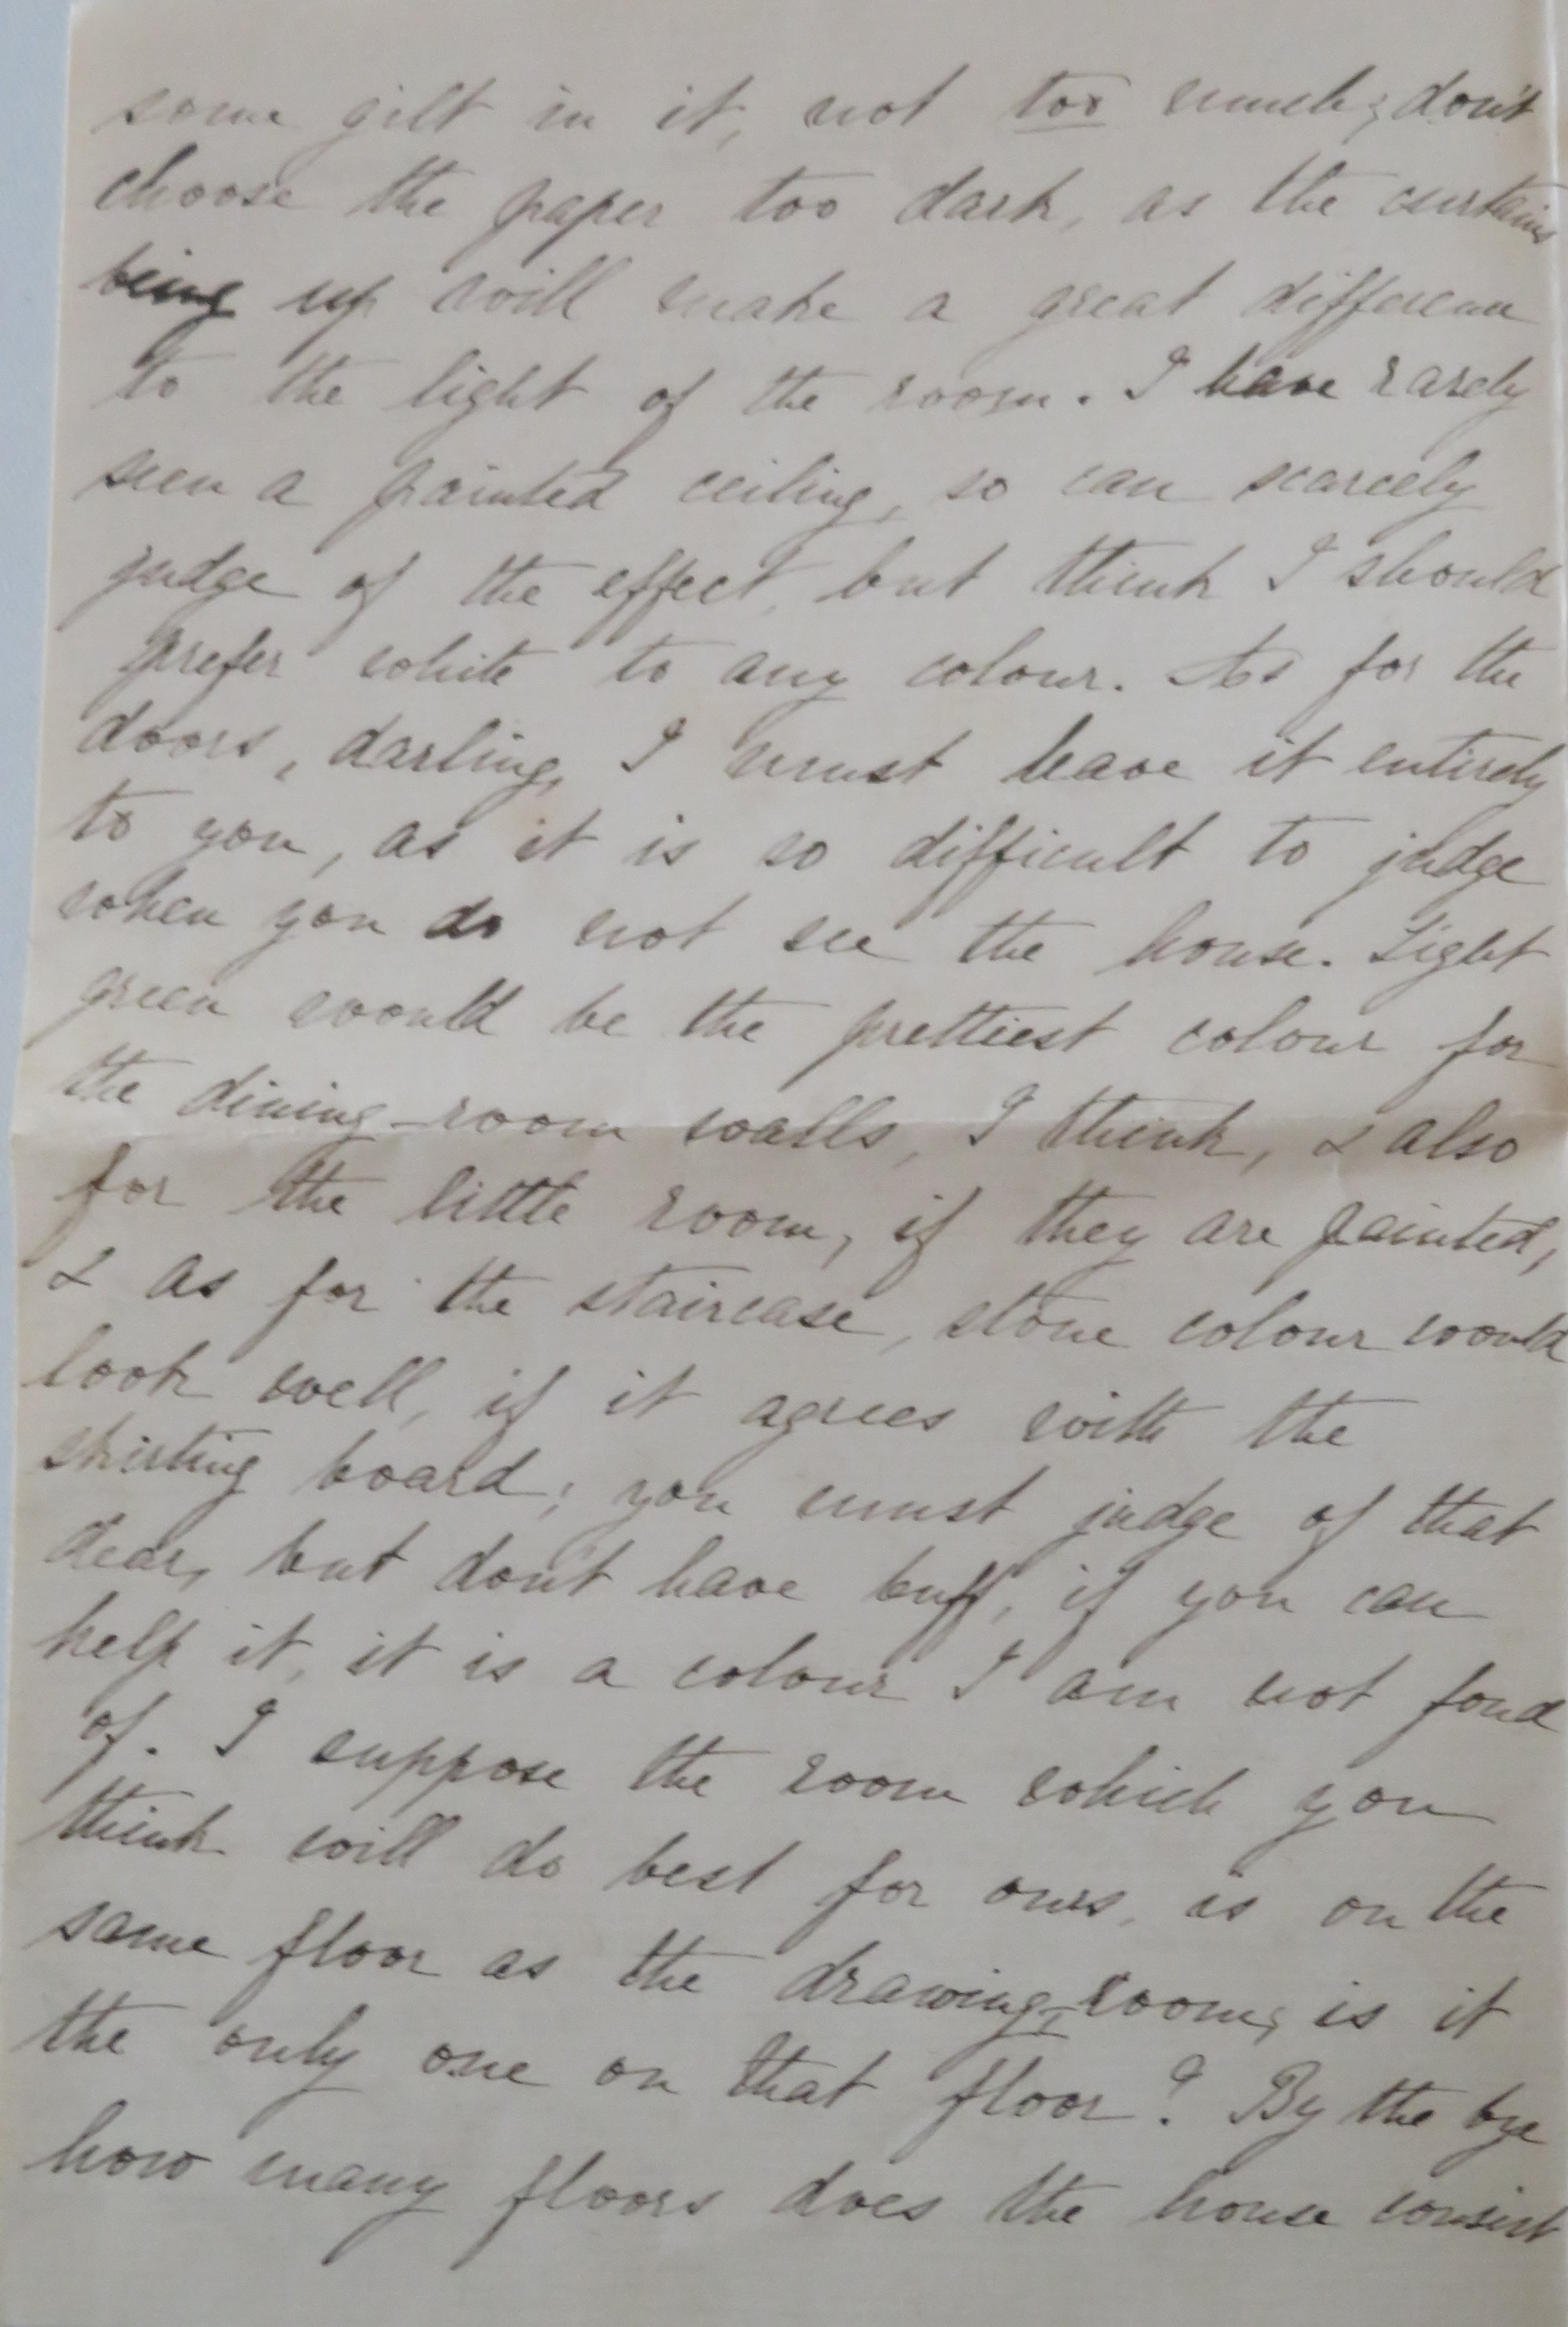 some gilt in it, not too much; don't
choose the paper too dark, as the curtains
being up will make a great difference
to the light of the room. I have rarely
seen a painted ceiling, so can scarcely
judge of the effect, but think I should
prefer white to any colour. As for the
doors, darling, I must leave it entirely
to you, as it is so difficult to judge
when you do not see the house. Light
green would be the prettiest colour for
the dining-room walls, I think, & also
for the little room, if they are painted,
& as for the staircase, stone colour would
look well, if it agrees with the
skirting board; you must judge of that
dear, but don't have buff, if you can
help it, it is a colour I am not fond
of. I suppose the room which you
think will do best for ours, is on the
same floor as the drawing-room, is it
the only one on that floor? By the bye
how many floors does the house consist